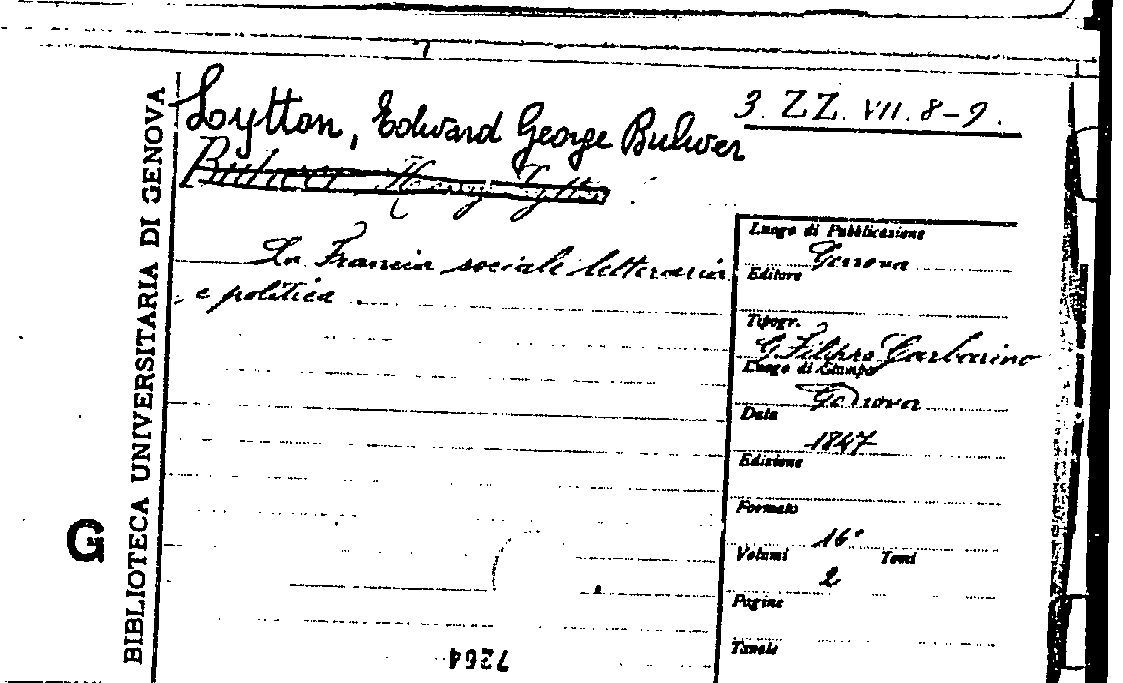 Lytton, Edward George Bulwer
3. ZZ. VII. 8-9.
Bulwer Henry Lytton
La Francia sociale letteraria
e politica
Luogo di Pubblicazione
Genova
Editore
Tipogr.
G Filippo Garbarino
Luogo di Stampa
Genova
Data
1847
Edizione
Formato
16°
Volumi Tomi
2
Pagine
Tavole
BIBLIOTECA UNIVERSITARIA DI GENOVA
G
7264